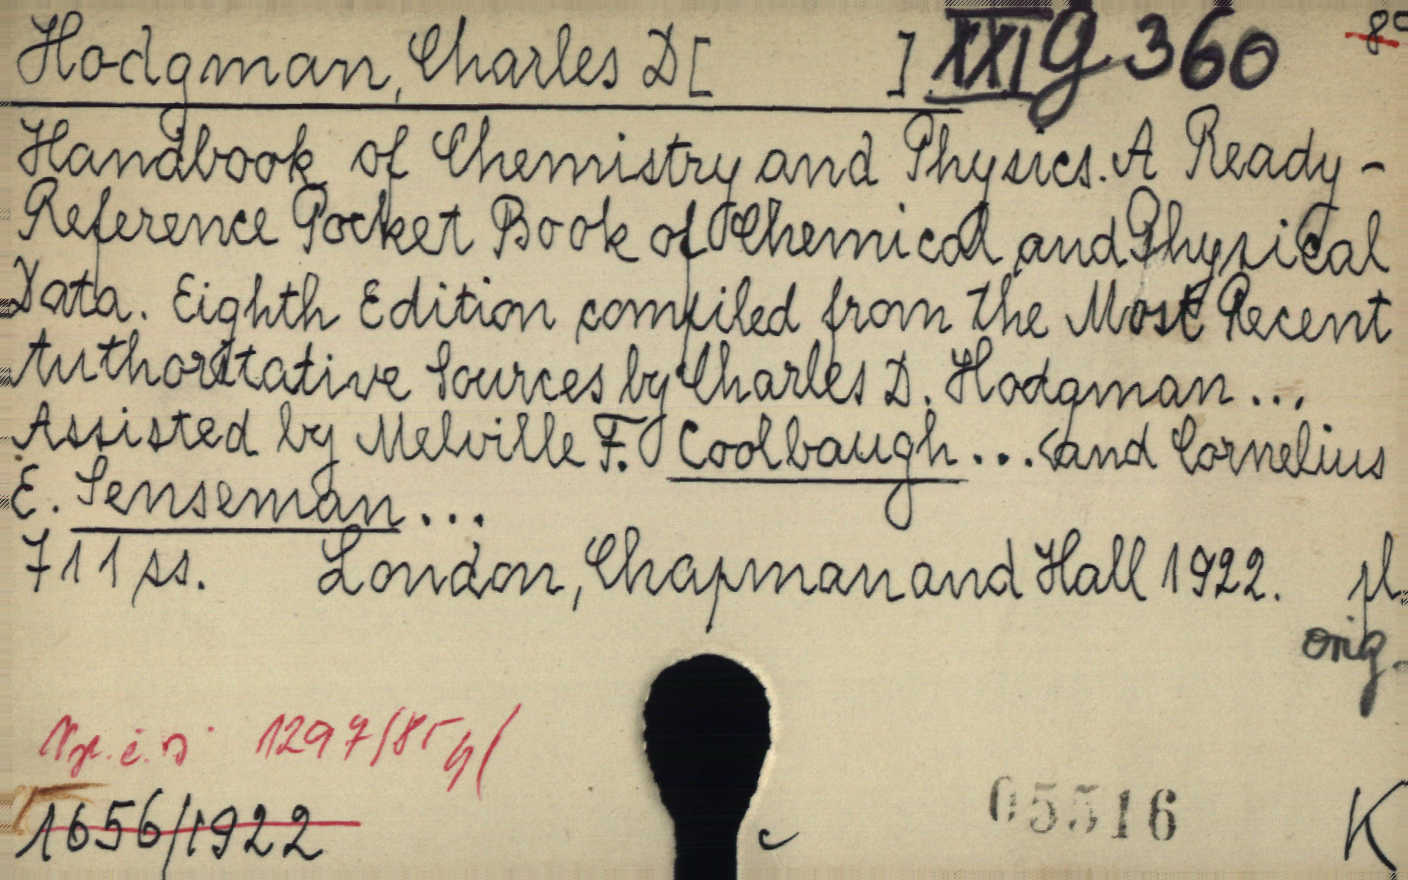 Hodgman, Charles D[ ] XXI G 360 8°
Handbook of Chemistry and Physics. A Ready-
Reference Pocket Book of Chemical and Physical
Data. Eighth Edition compiled from the Most Recent
Authoritative Sources by Charles D. Hodgman...
Assisted by Melville F. Coolbaugh... and Cornelius
E. Senseman...
711 ss. London, Chapman and Hall 1922. pl.
orig.
1297/85
1656/1922
05516
K